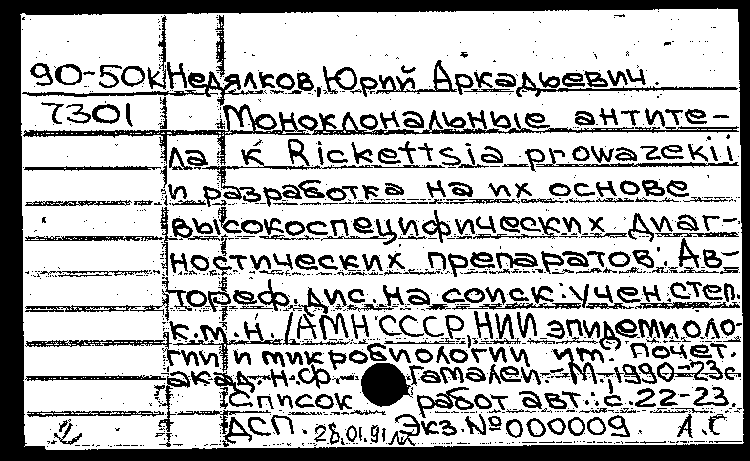 90-50к Недялков, Юрий Аркадьевич.
7301 Моноклональные антите-
ла к Rickettsia prowazekii
и разработка на их основе
высокоспецифических диаг-
ностических препаратов: Ав-
тореф. дис. на соиск. учен. степ.
к.м.н. /АМН СССР, НИИ эпидемиоло-
гии и микробиологии им. почет.
акад. Н.Ф. Гамалеи.-М., 1990-23с.
Список работ авт.: с. 22-23.
ДСП. 28.01.91 Экз. № 000009. А.С